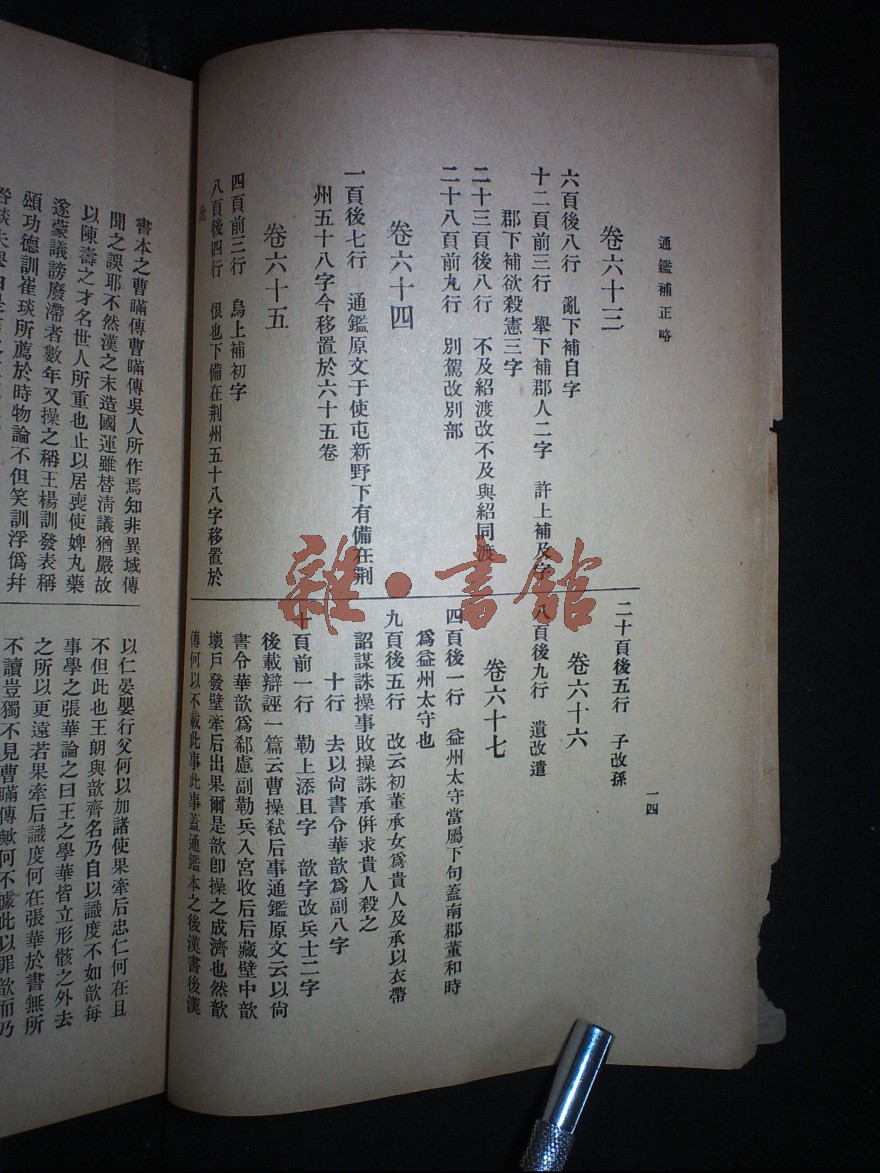 通鑑補正略
卷六十三
六頁後八行　亂下補自字
十二頁前三行　舉下補郡人二字　許上補及字
郡下補欲殺憲三字
二十三頁後八行　不及紹渡改不及與紹同渡
二十八頁前九行　別駕改別部
卷六十四
一頁後七行　通鑑原文于使屯新野下有備在荆
州五十八字今移置於六十五卷
卷六十五
四頁前三行　烏上補初字
八頁後四行　恨也下備在荆州五十八字移置於
此
二十頁後五行　子改孫
卷六十六
八頁後九行　遺改遣
卷六十七
四頁後一行　益州太守當屬下句蓋南郡董和時
爲益州太守也
九頁後五行　改云初董承女爲貴人及承以衣帶
詔謀誅操事敗操誅承併求貴人殺之
十行　去以尙書令華歆爲副八字
十頁前一行　勒上添且字　歆字改兵士二字
後載辯誣一篇云曹操弑后事通鑑原文云以尙
書令華歆爲郗慮副勒兵入宮收后后藏壁中歆
壞戶發壁牽后出果爾是歆卽操之成濟也然歆
傳何以不載此事此事蓋通鑑本之後漢書後漢
一四
書本之曹瞞傳曹瞞傳吳人所作焉知非異域傳
聞之誤耶不然漢之末造國運雖替淸議猶嚴故
以陳壽之才名世人所重也止以居喪使婢丸藥
遂蒙議謗廢滯者數年又操之稱王楊訓發表稱
頌功德訓崔琰所薦於時物論不但笑訓浮僞幷
以仁晏嬰行父何以加諸使果牽后忠仁何在且
不但此也王朗與歆齊名乃自以識度不如歆每
事學之張華論之曰王之學華皆立形骸之外去
之所以更遠若果牽后識度何在張華於書無所
不讀豈獨不見曹瞞傳歟何不據此以罪歆而乃
雜·書館